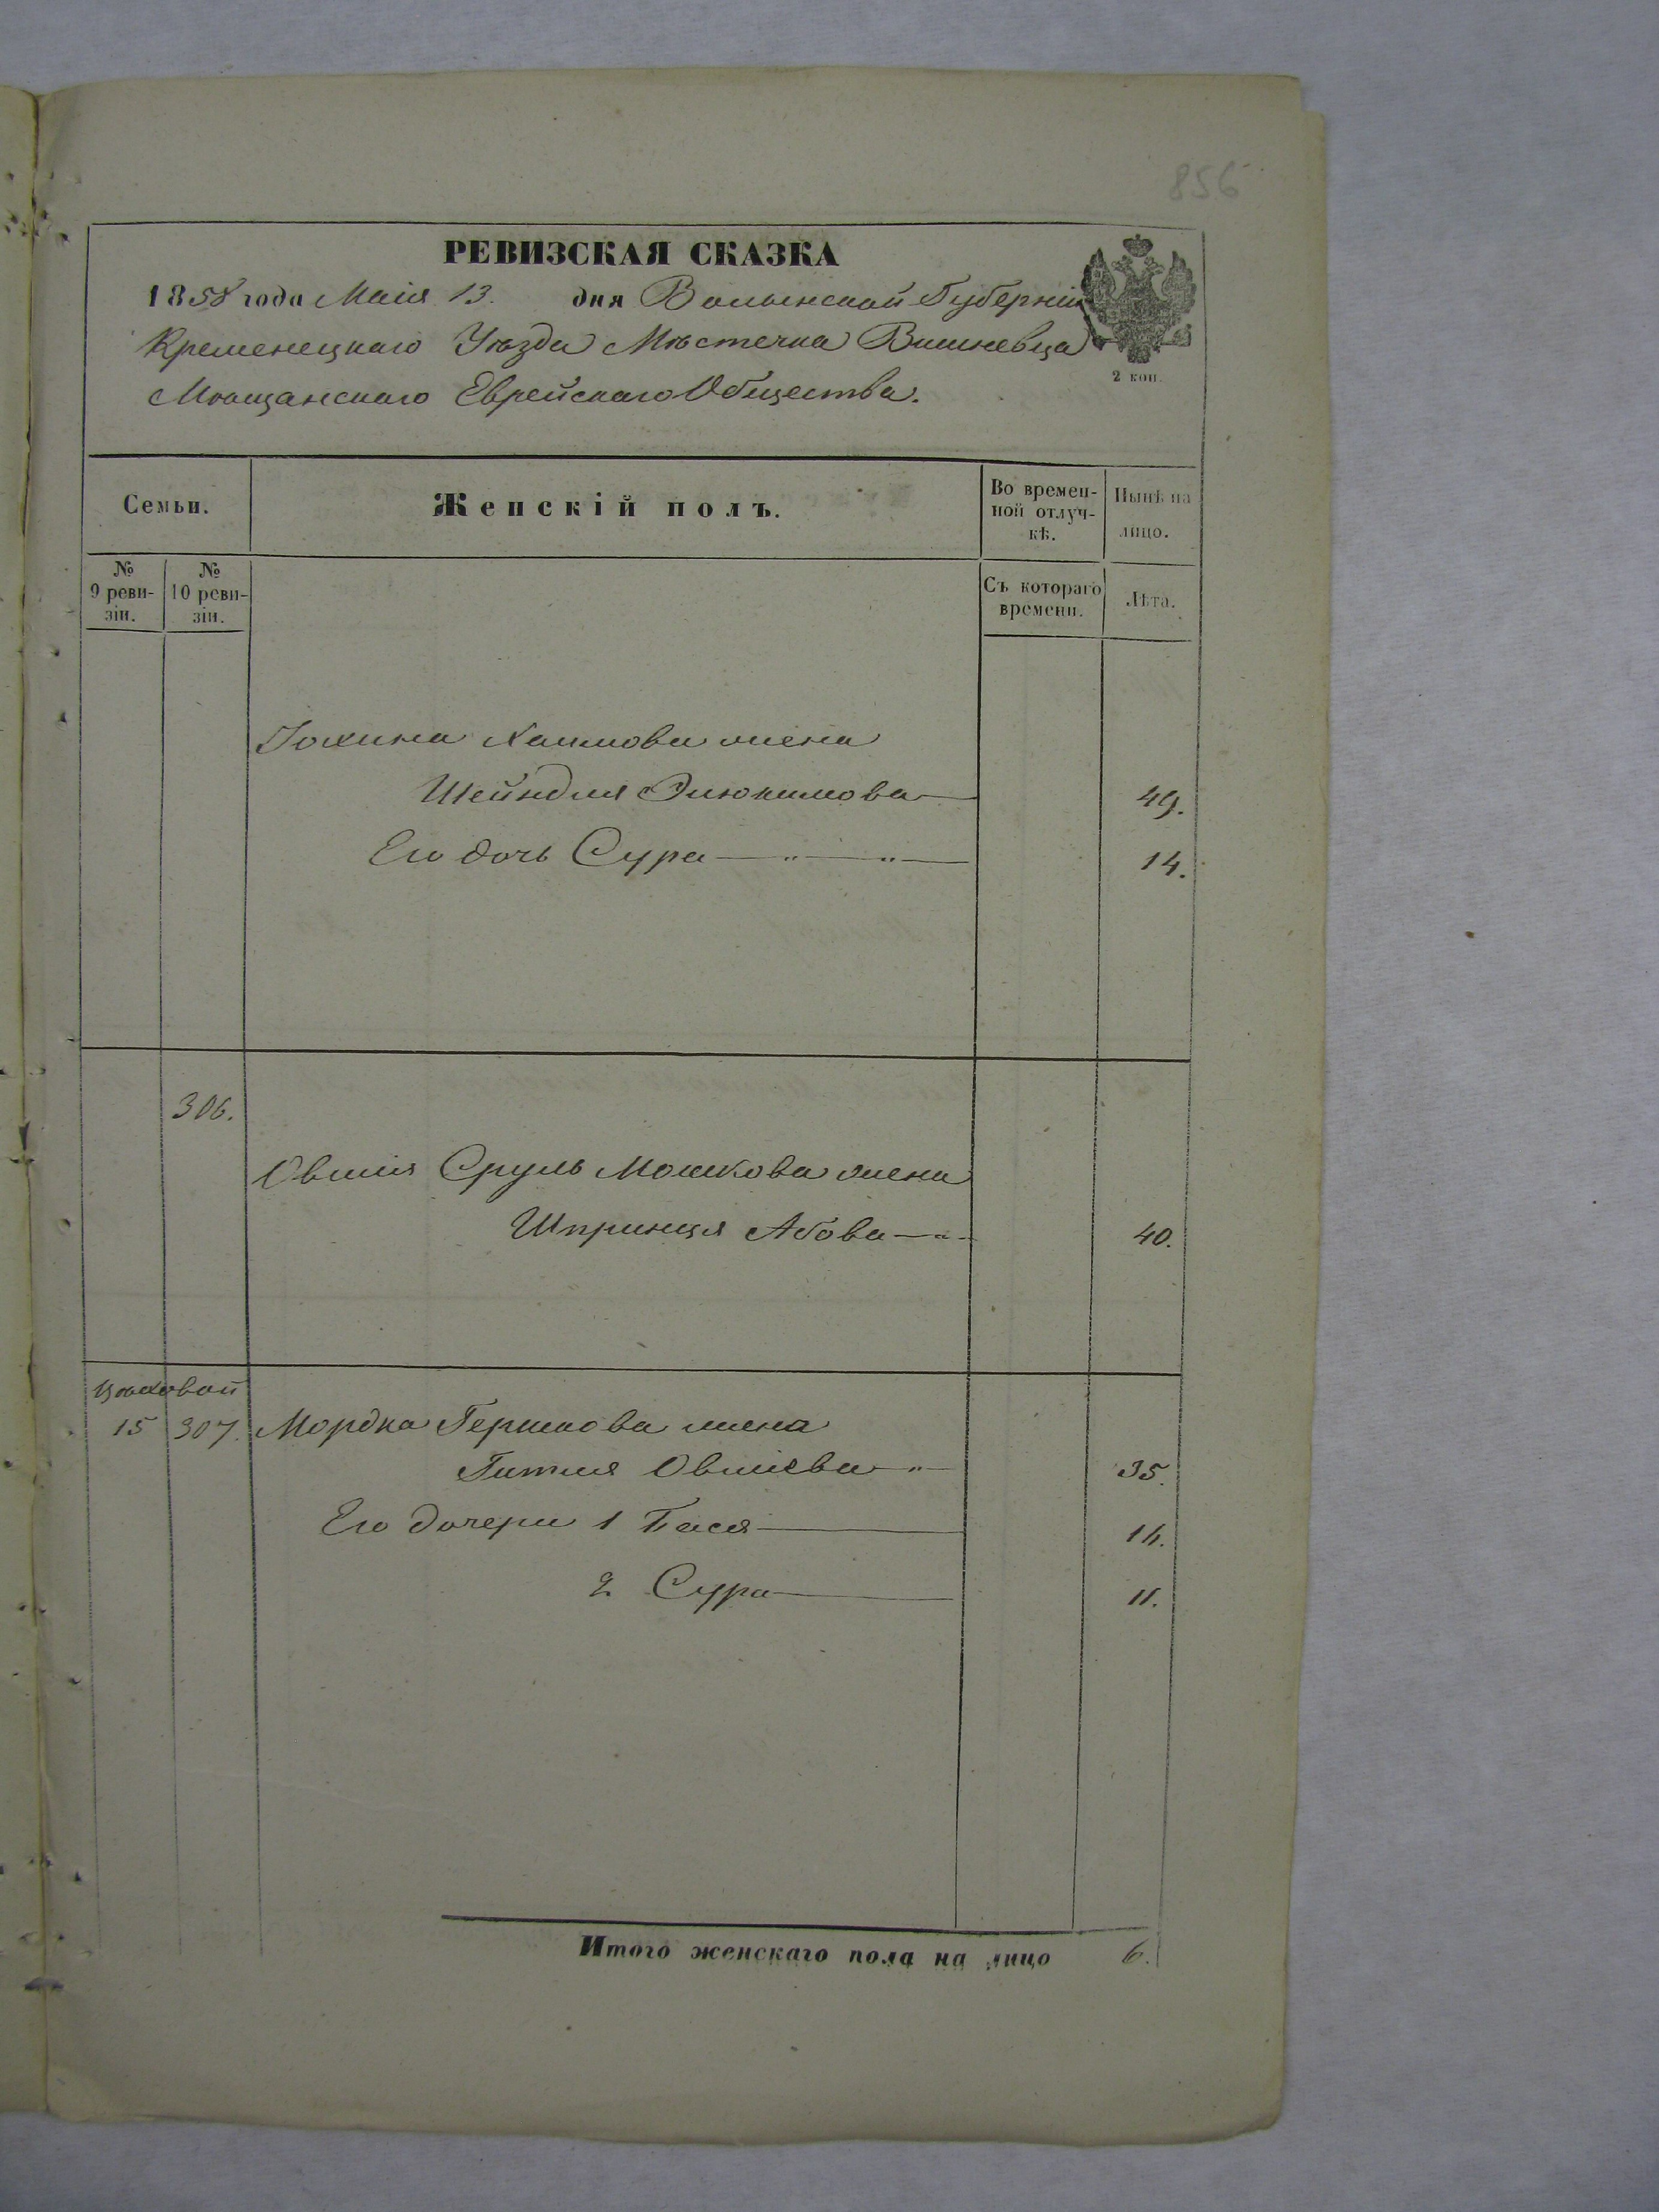 856
РЕВИЗСКАЯ СКАЗКА
1858 года Маія 13. дня Волынской Губерніи
Кременецкаго Уѣзда Мѣстечка Вишневца
2 коп.
Мѣщанскаго Еврейскаго Общества.
Семьи. Женскій полъ. Во времен- Нынѣ на
ной отлуч- лицо.
кѣ.
№ № Съ котораго Лѣта.
9 реви- 10 реви- времени.
зіи. зіи.
Хаимова жена
Шейндля Элюкимова 49.
Его дочь Сура — " — " — 14.
306.
Овшія Сруль Мошкова жена
Шпринця Абова — " 40.
Цѣховой
15 307. Мордка Гершкова жена
Гитля Овшіева — " 35.
Его дочери 1 Бася 14.
2 Сура 11.
Итого женскаго пола на лицо 6.